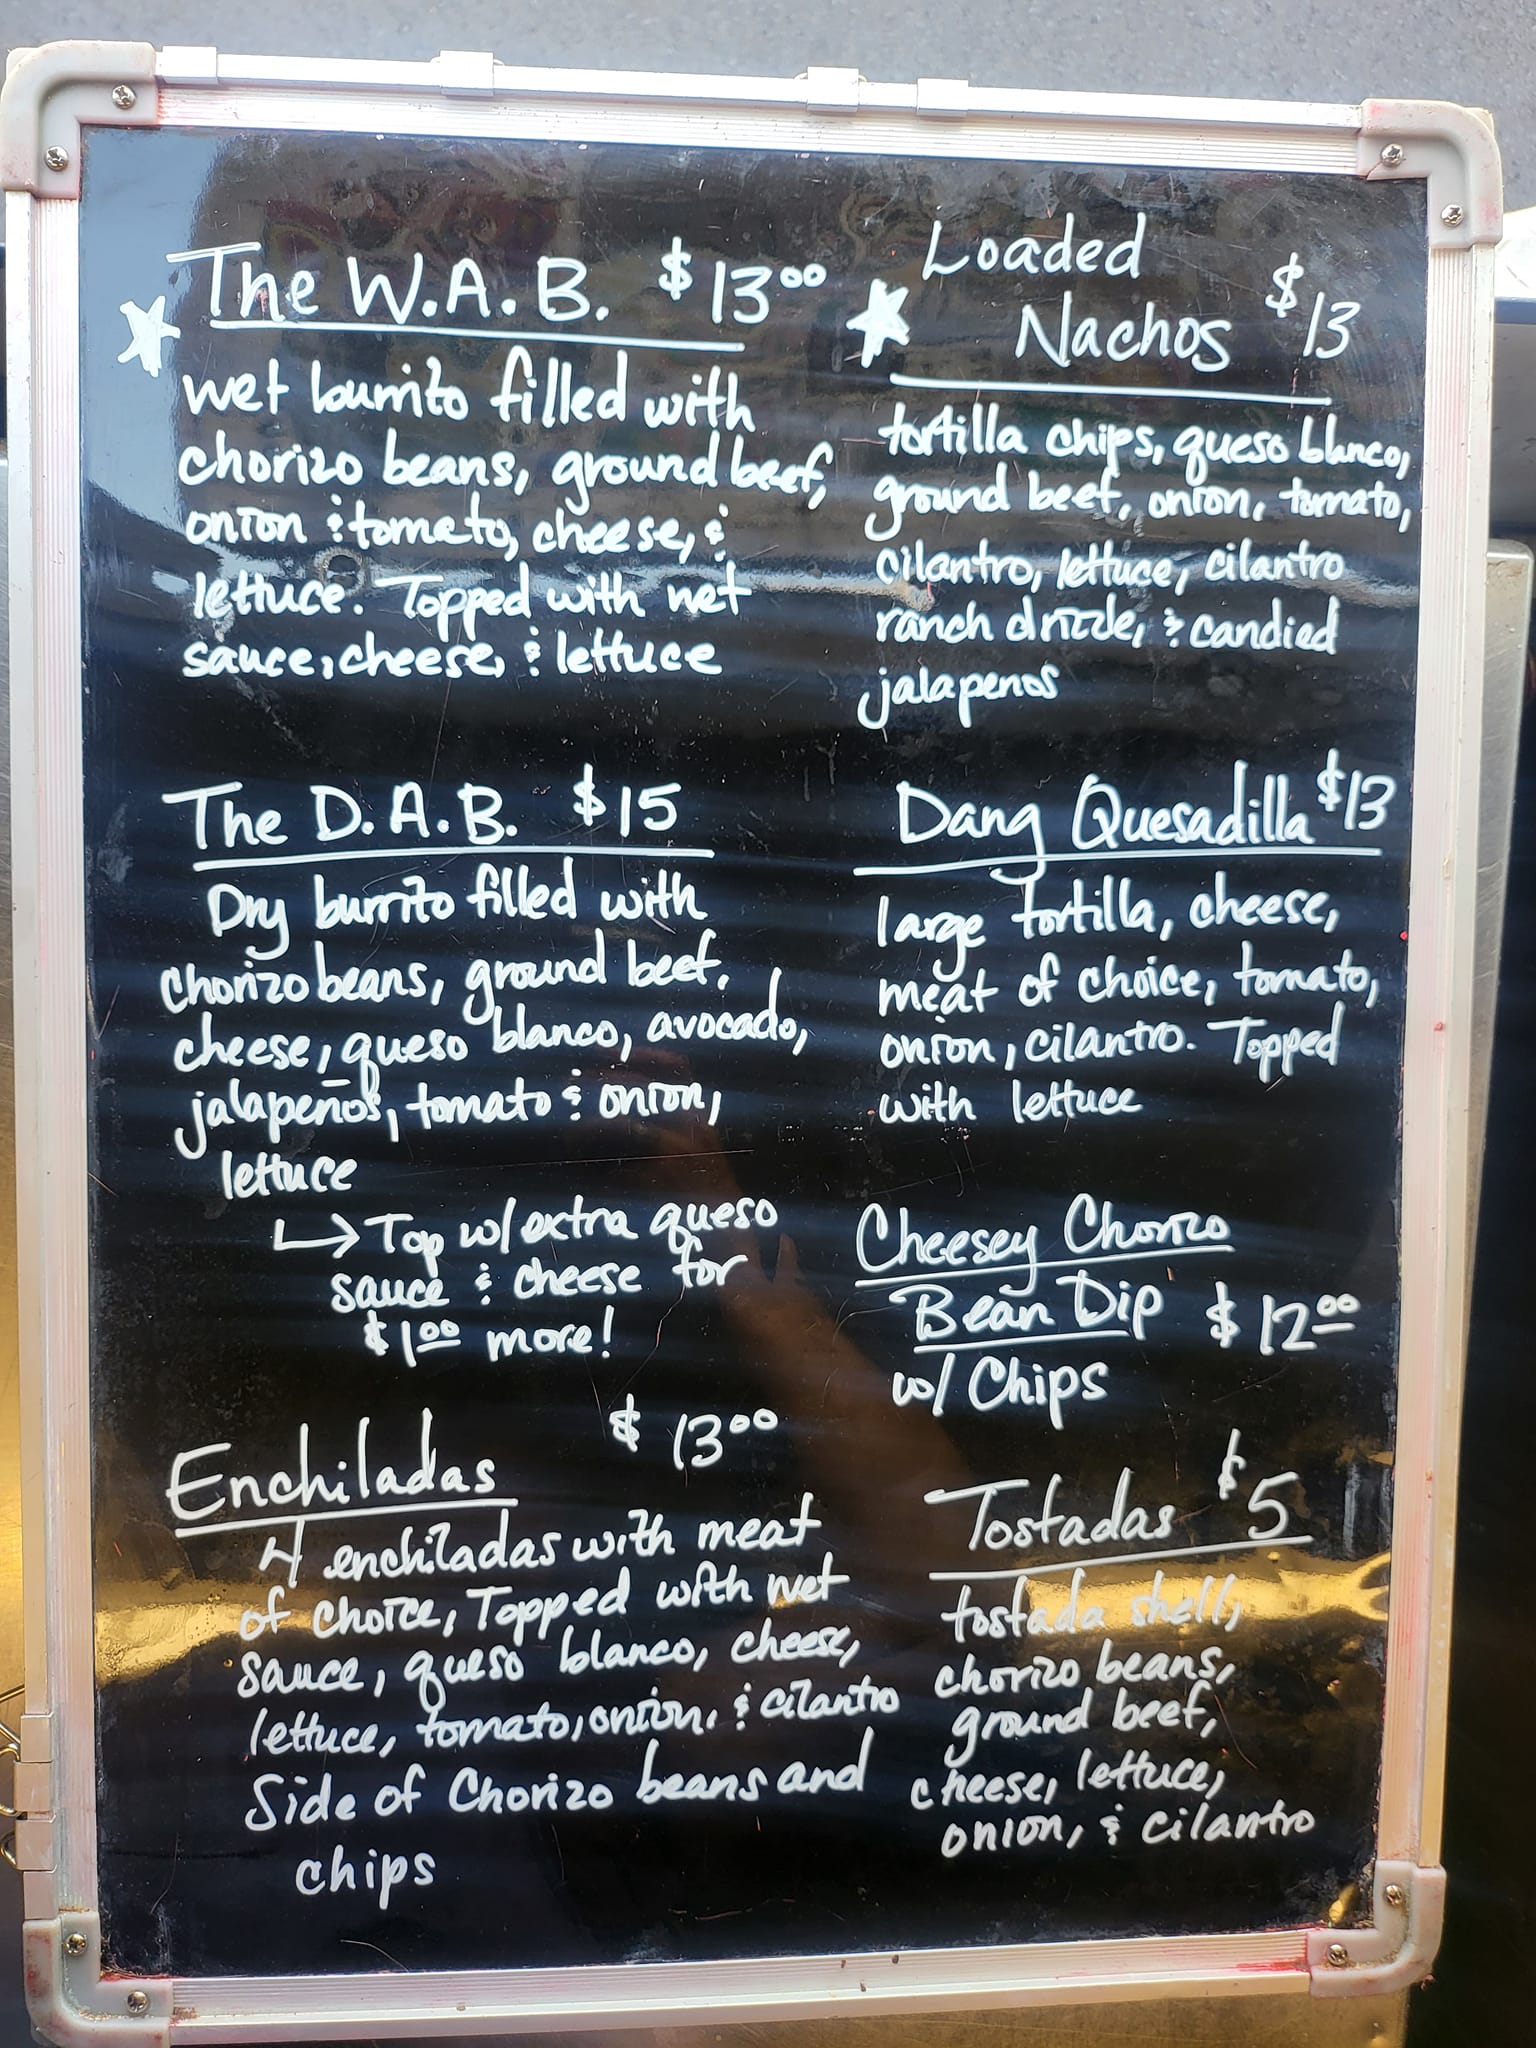 The W.A.B. $13.00
wet burrito filled with
chorizo beans, ground beef,
onion & tomato, cheese, &
lettuce. Topped with wet
sauce, cheese, & lettuce
The D.A.B. $15
Dry burrito filled with
chorizo beans, ground beef,
cheese, queso blanco, avocado,
jalapeños, tomato & onion,
lettuce
↳ Top w/ extra queso
sauce & cheese for
$1.00 more!
$13.00
Enchiladas
4 enchiladas with meat
of choice, Topped with wet
sauce, queso blanco, cheese,
lettuce, tomato, onion, & cilantro
Side of Chorizo beans and
chips
Loaded
Nachos $13
tortilla chips, queso blanco,
ground beef, onion, tomato,
cilantro, lettuce, cilantro
ranch drizzle, & candied
jalapenos
Dang Quesadilla $13
large tortilla, cheese,
meat of choice, tomato,
onion, cilantro. Topped
with lettuce
Cheesey Chorizo
Bean Dip $12.00
w/ Chips
Tostadas $5
tostada shell,
chorizo beans,
ground beef,
cheese, lettuce,
onion, & cilantro